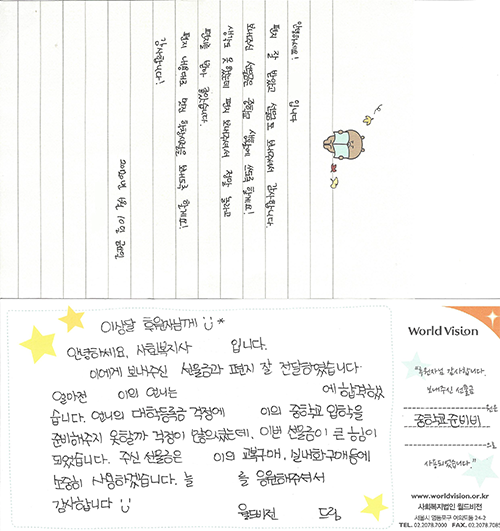 안녕하세요! 입니다
편지 잘 받았고 선물금도 보내주셔서 감사합니다.
보내주신 선물금은 중학교 생활에 쓰도록 할게요!
생각도 못했는데 편지 보내주셔서 정말 놀라고
편지를 받아 좋았습니다.
편지 내용대로 멋진 학창시절을 보내도록 할게요!
감사합니다!
2020년 4월 10일 금요일
이상달 후원자님께
안녕하세요, 사회복지사 입니다.
이에게 보내주신 선물금과 편지 잘 전달하였습니다.
얼마전 이의 언니는 에 합격했
습니다. 언니의 대학등록금 걱정에 이의 중학교 입학을
준비해주지 못할까 걱정이 많으셨는데, 이번 선물금이 큰 힘이
되었습니다. 주신 선물금은 이의 교복구매, 실내화구매 등에
소중히 사용하겠습니다. 늘 를 응원해주셔서
감사합니다
월드비전 드림
World Vision
"후원자님 감사합니다.
보내주신 선물금
원은
중학교준비비
으로
사용되었습니다."
www.worldvision.or.kr
사회복지법인 월드비전
서울시 영등포구 여의나루 24-2
TEL. 02.2078.7000 FAX. 02.2078.708